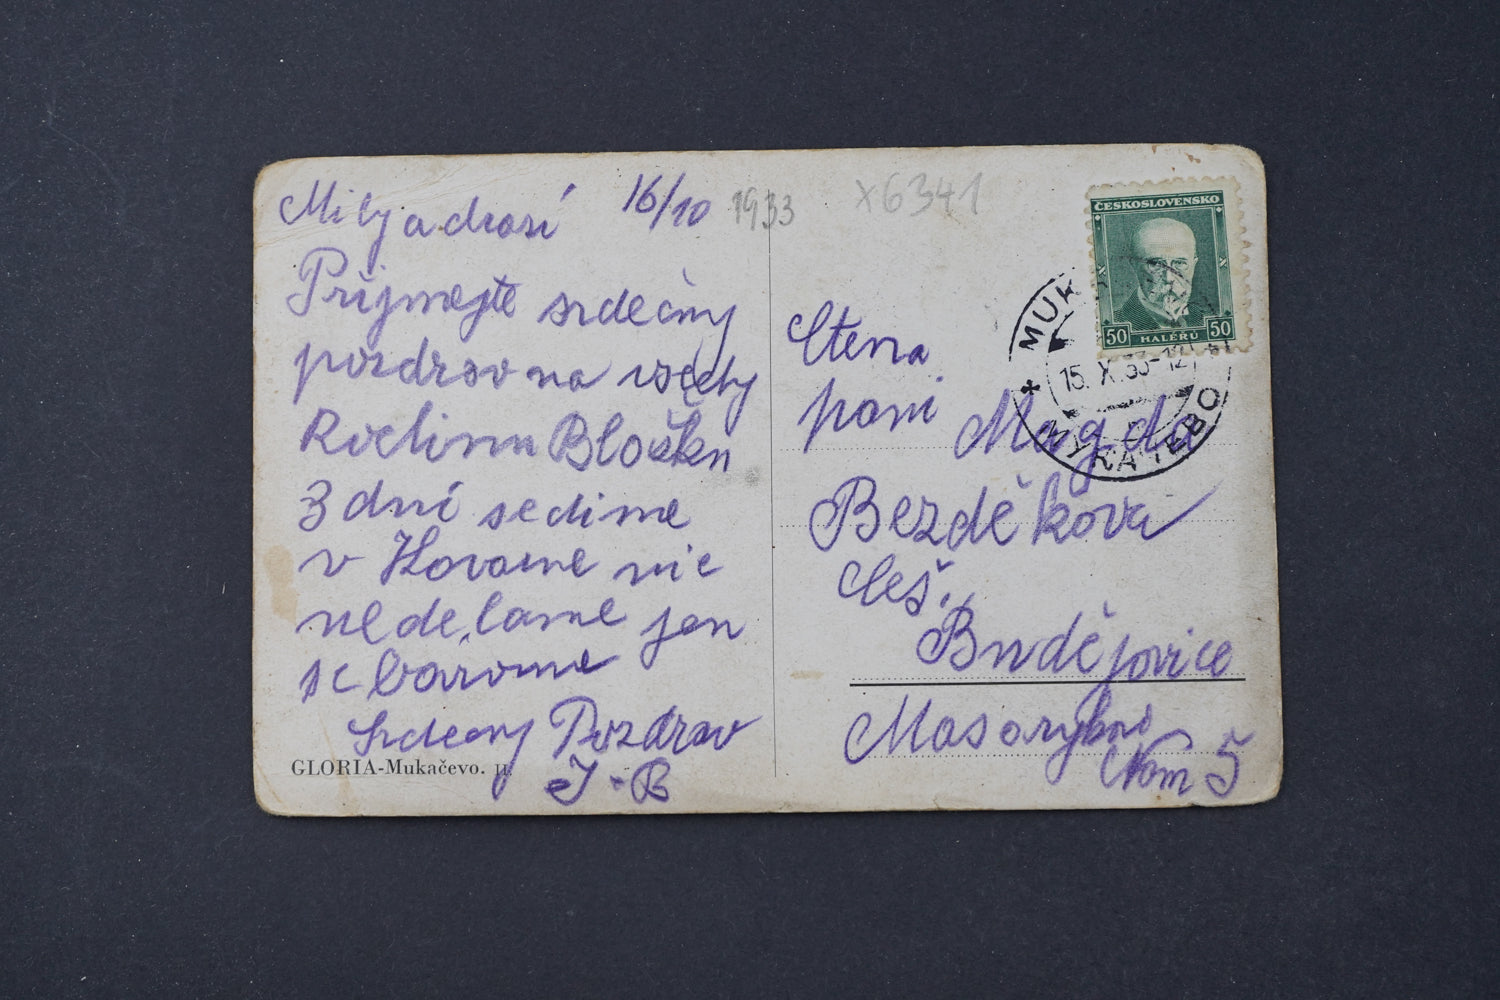 Milý a drazí 16/10 1933
Přijmejte srdečný
pozdrav na všechy
Rodinu Blošku
3 dní sedíme
v Kovarne nic
nedělame jen
se bavíme
Srdecny Pozdrav
J-B
GLORIA-Mukačevo. II.
x6341
ČESKOSLOVENSKO
50 HALÉŘŮ 50
MUK
15. X. 33-12
Ctena
pani Magda
Bezděkova
Čes.
Budějovice
Masarykni
Nam 5